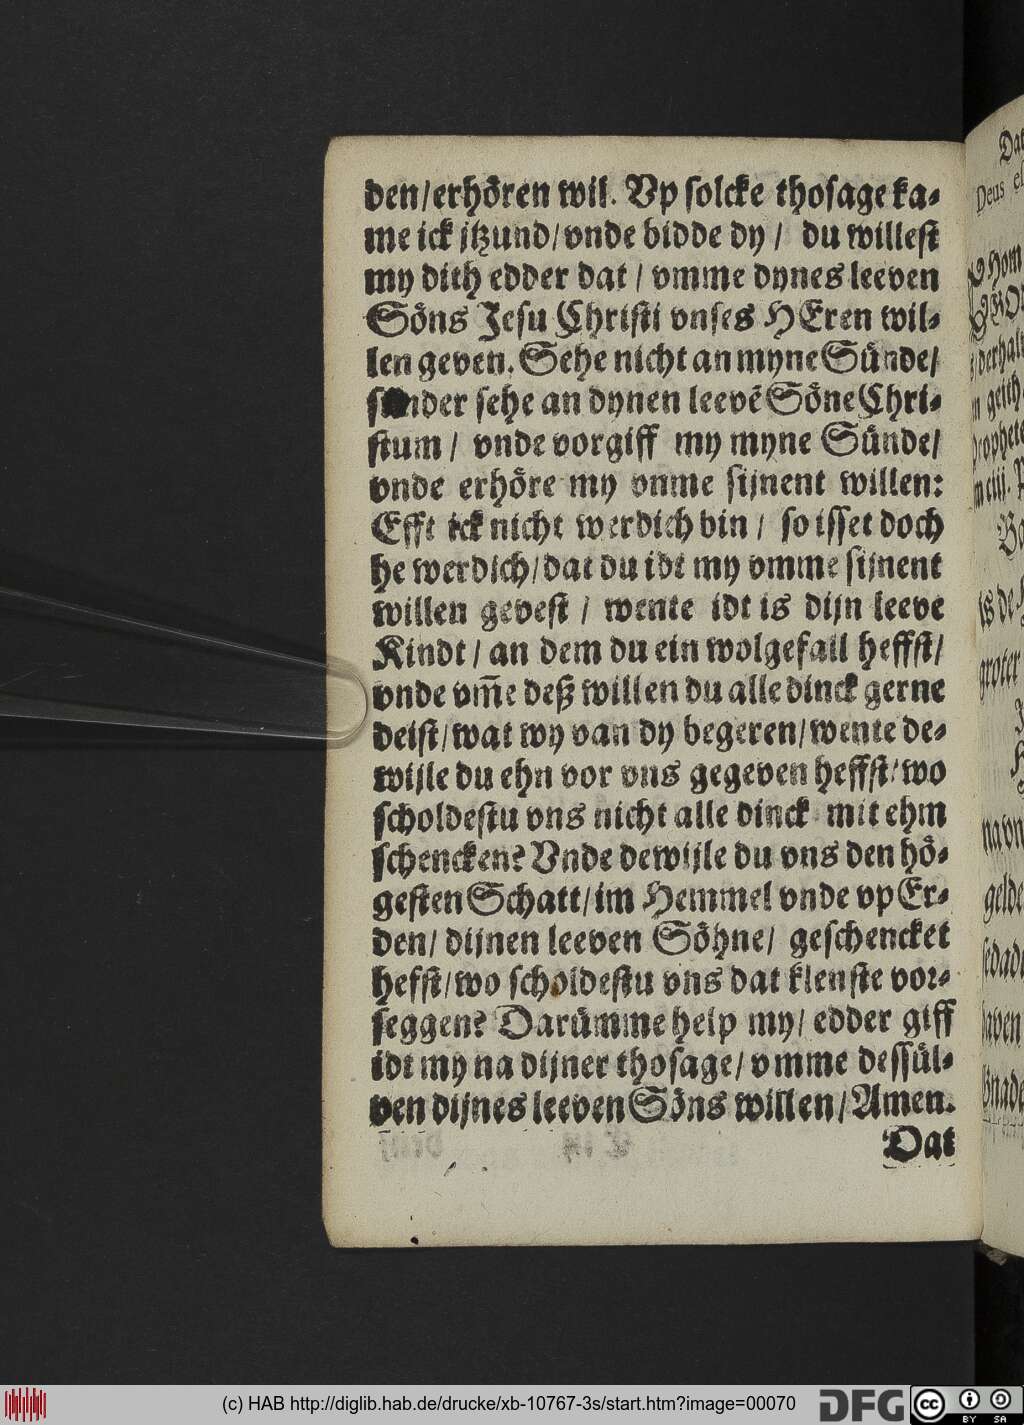 den/erhören wil. Vp solcke thosage ka-
me ick jtzund/vnde bidde dy / du willest
my dith edder dat / vmme dynes leeven
Söns Jesu Christi vnses HEren wil-
len geven. Sehe nicht an myne Sünde/
sünder sehe an dynen leevē Söne Chri-
stum / vnde vorgiff my myne Sünde/
vnde erhöre my vmme sijnent willen:
Efft ick nicht werdich bin / so isset doch
he werdich/dat du idt my vmme sijnent
willen gevest / wente idt is dijn leeve
Kindt/ an dem du ein wolgefall heffst/
vnde vm̄e deß willen du alle dinck gerne
deist/wat wy van dy begeren/wente de-
wijle du ehn vor vns gegeven heffst/wo
scholdestu vns nicht alle dinck mit ehm
schencken? Vnde dewijle du vns den hö-
gesten Schatt/im Hemmel vnde vp Er-
den/ dijnen leeven Söhne/ geschencket
hefft/wo scholdestu vns dat klenste vor-
seggen? Darümme help my/ edder giff
idt my na dijner thosage/vmme dessül-
ven dijnes leeven Söns willen/Amen.
Dat
(c) HAB http://diglib.hab.de/drucke/xb-10767-3s/start.htm?image=00070
DFG
cc
BY SA